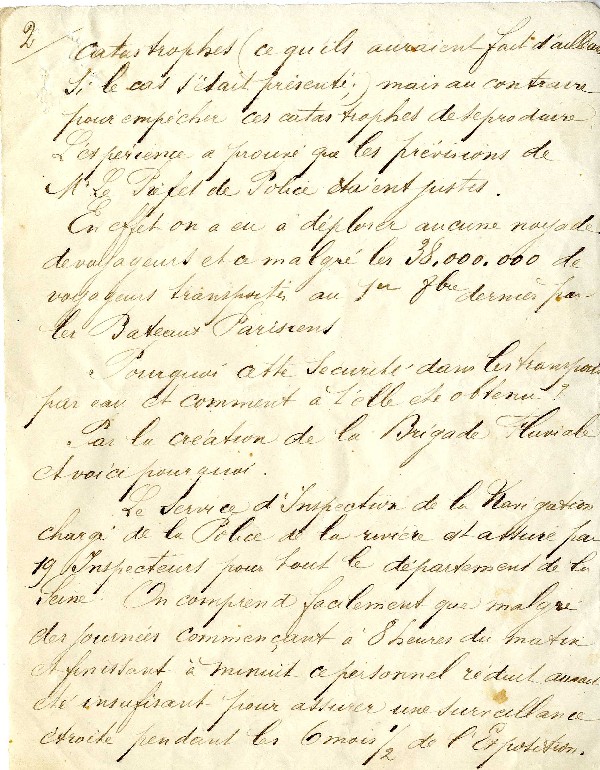 2/
catastrophes (ce qu'ils auraient fait d'ailleurs
si le cas s'était présenté;) mais au contraire
pour empêcher ces catastrophes de se produire
L'expérience a prouvé que les prévisions de
Mr Le Préfet de Police étaient justes.
En effet on a eu à déplorer aucune noyade
de voyageurs et ce malgré les 38.000.000 de
voyageurs transportés au 1er 8bre dernier par
les Bateaux Parisiens
Pourquoi cette sécurité dans les transports
par eau et comment a t'elle été obtenu?
Par la création de la Brigade Fluviale
et voici pourquoi.
Le Service d'Inspection de la Navigation
chargé de la Police de la rivière est assuré par
19 Inspecteurs pour tout le département de la
Seine. On comprend facilement que malgré
des journées commençant à 8 heures du matin
et finissant à minuit ce personnel réduit aurait
été insufisant pour assurer une surveillance
étroite pendant les 6 mois 1/2 de l'Exposition.